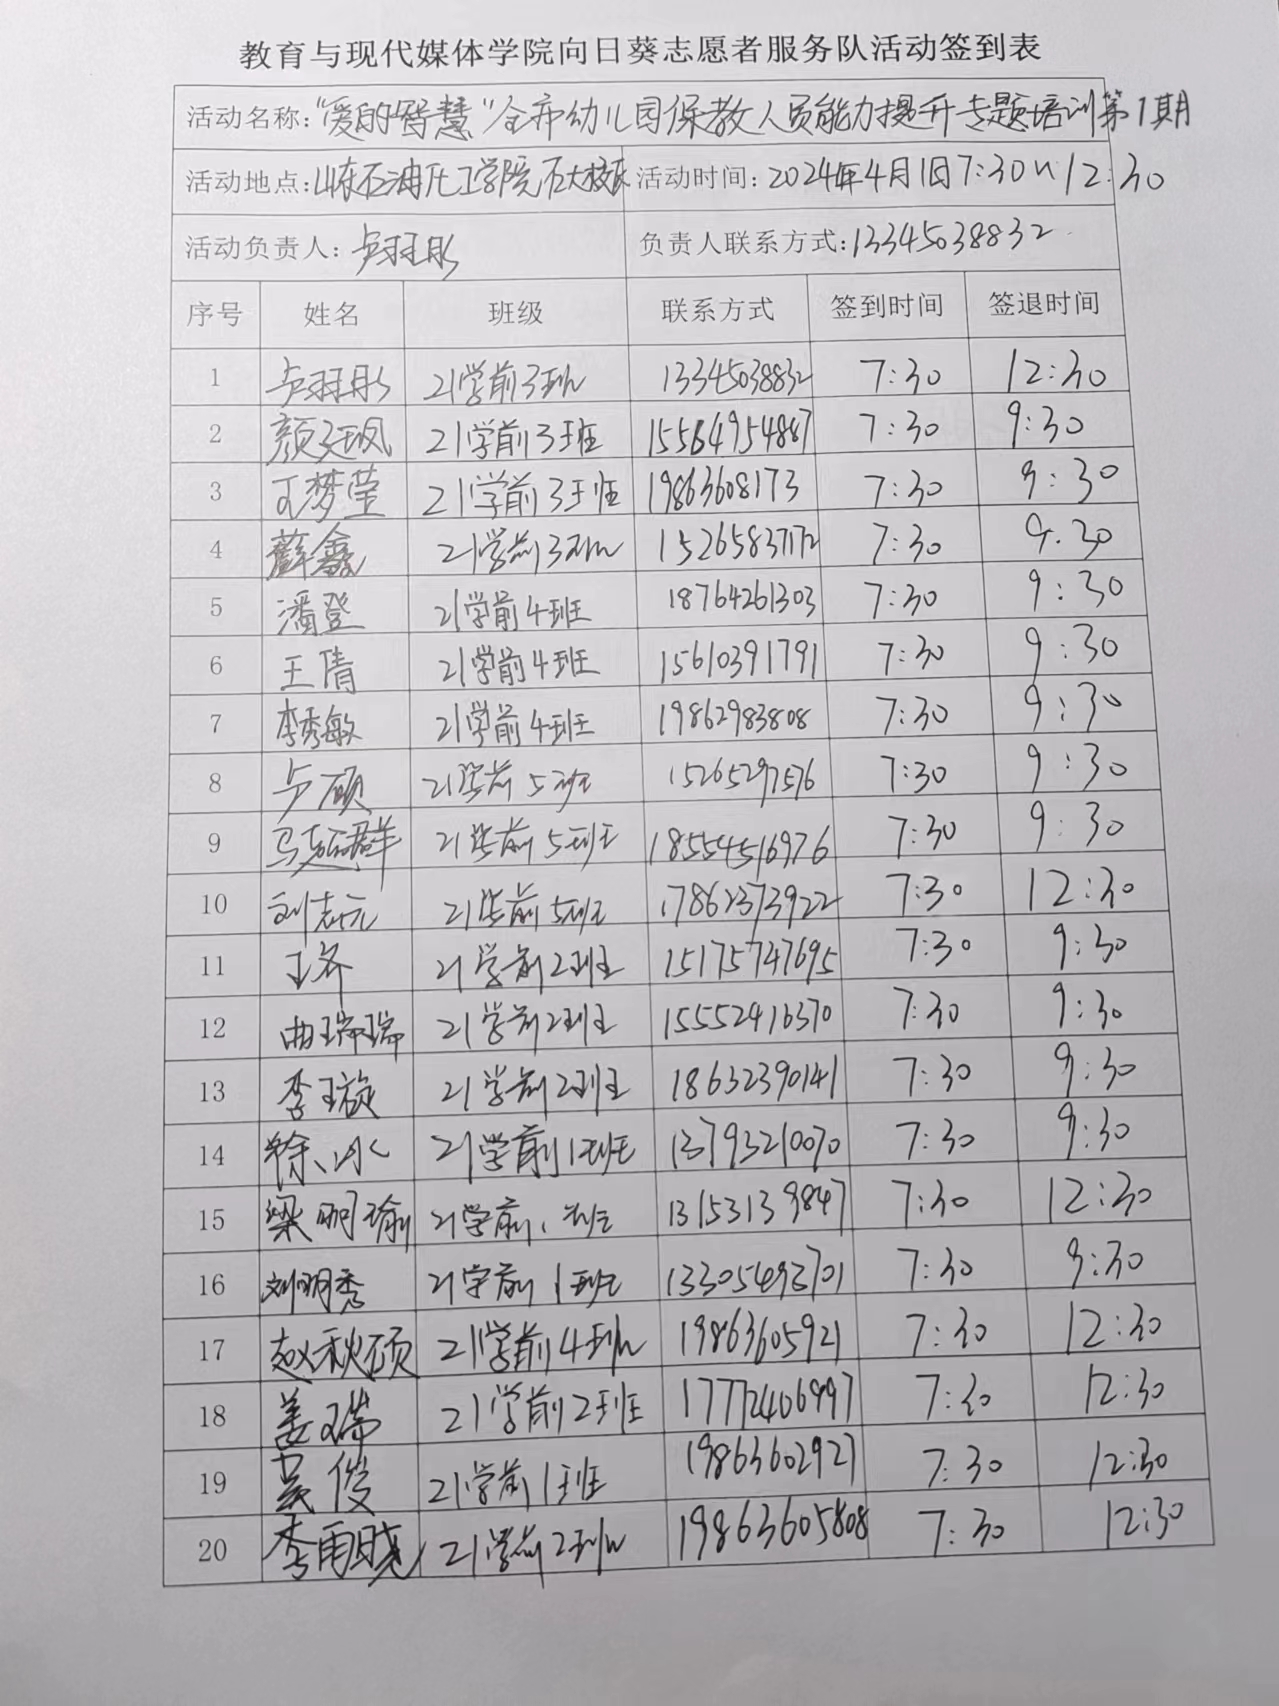 教育与现代媒体学院向日葵志愿者服务队活动签到表
活动名称:“爱的智慧”全市幼儿园保教人员能力提升专题培训第1期
活动地点:山东石油化工学院石大校区 活动时间:2024年4月1日7:30~12:30
活动负责人: 负责人联系方式:13345038832
序号 姓名 班级 联系方式 签到时间 签退时间
1 21学前3班 13345038832 7:30 12:30
2 21学前3班 15564954887 7:30 9:30
3 王梦莹 21学前3班 19863608173 7:30 9:30
4 薛鑫 21学前3班 15265837172 7:30 9:30
5 潘登 21学前4班 18764261303 7:30 9:30
6 王倩 21学前4班 15610391791 7:30 9:30
7 李秀敏 21学前4班 19862983808 7:30 9:30
8 卢硕 21学前5班 15265297576 7:30 9:30
9 21学前5班 18554516976 7:30 9:30
10 刘志元 21学前5班 17862373922 7:30 12:30
11 王齐 21学前2班 15175747695 7:30 9:30
12 曲瑞瑞 21学前2班 15552416370 7:30 9:30
13 李璇 21学前2班 18632390141 7:30 9:30
14 徐冰 21学前1班 13793210070 7:30 9:30
15 梁明瑜 21学前1班 13153139847 7:30 12:30
16 刘明秀 21学前1班 13305493701 7:30 9:30
17 赵秋硕 21学前4班 19863605921 7:30 12:30
18 姜瑞 21学前2班 17772406997 7:30 12:30
19 吴俊 21学前1班 19863602927 7:30 12:30
20 李雨晓 21学前2班 19863605808 7:30 12:30